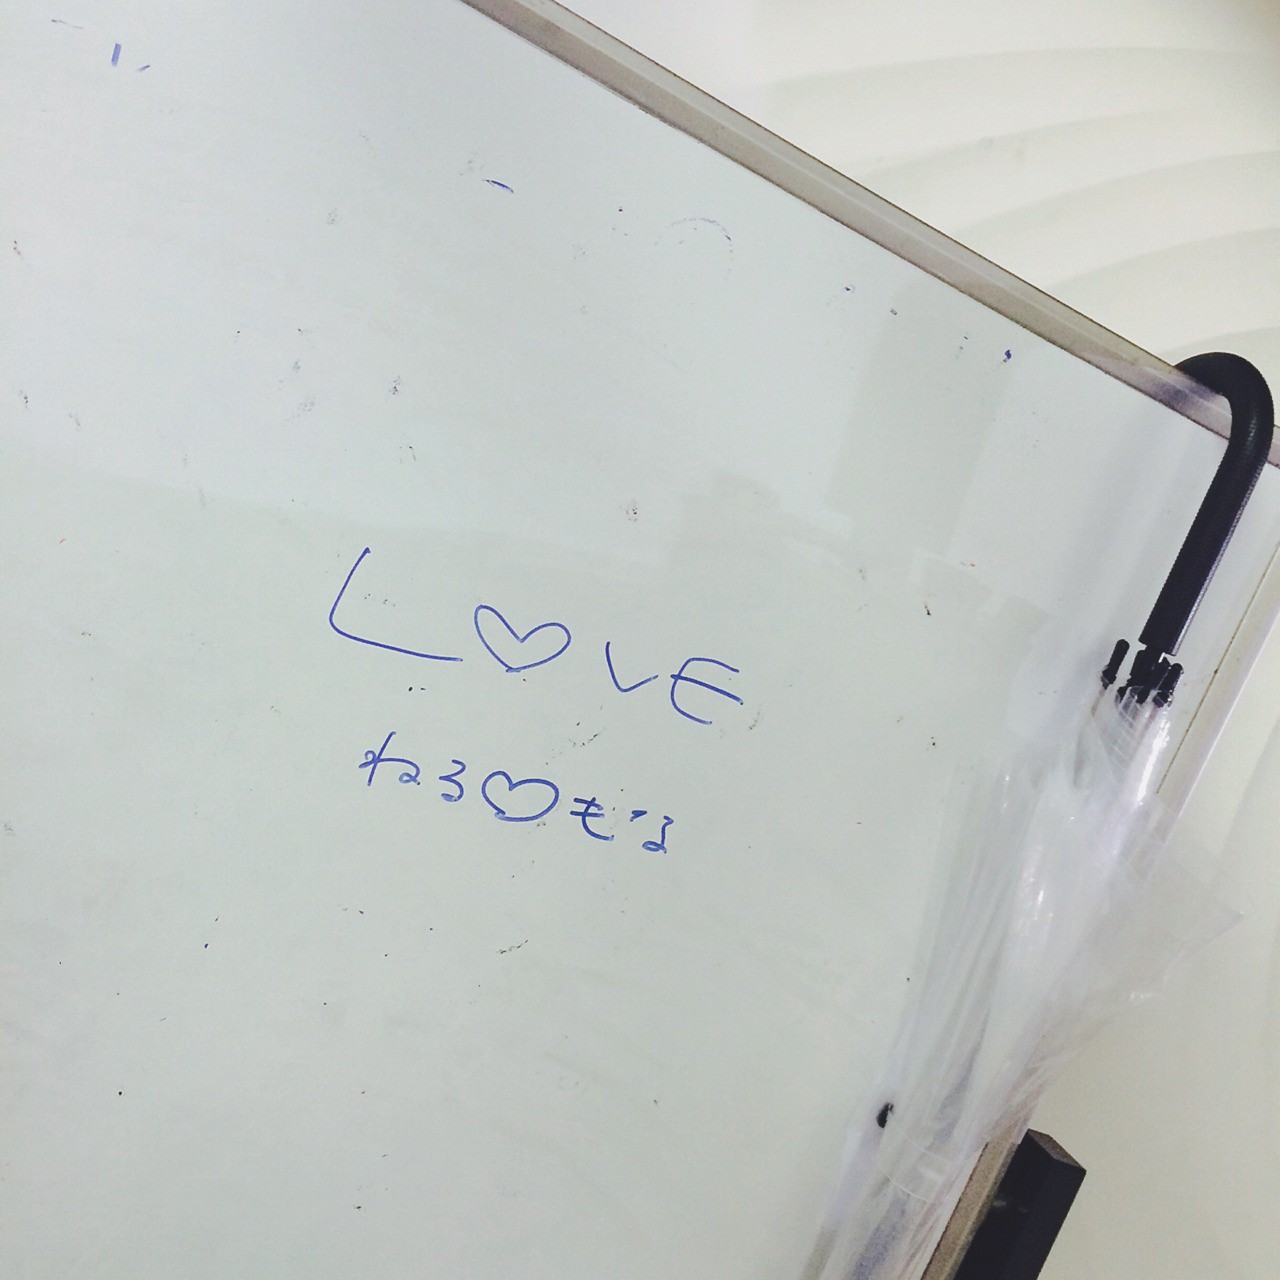 L♡VE
ねる♡もな